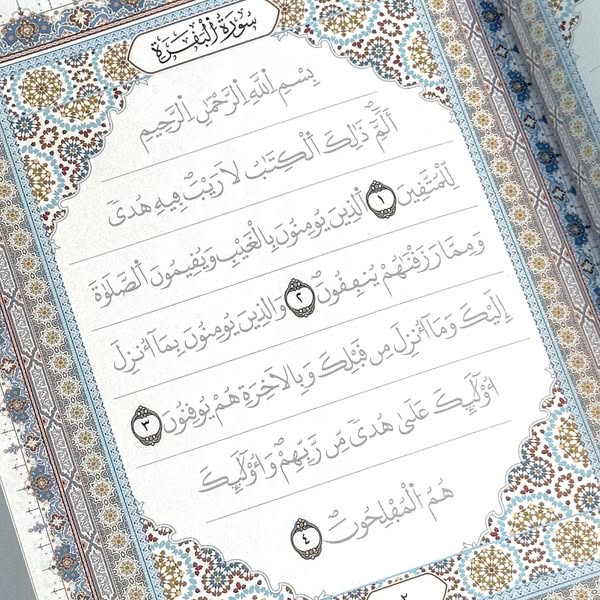 سُورَةُ الْبَقَرَةِ
بِسْمِ اِ۬للَّهِ اِ۬لرَّحْمَٰنِ اِ۬لرَّحِيمِ
أَلَٓمِّٓۖ ذَٰلِكَ اَ۬لْكِتَٰبُ لَا رَيْبَۖ فِيهِ هُدىٗ
لِّلْمُتَّقِينَ ١ اَ۬لذِينَ يُومِنُونَ بِالْغَيْبِ وَيُقِيمُونَ اَ۬لصَّلَوٰةَ
وَمِمَّا رَزَقْنَٰهُمْ يُنفِقُونَۖ ٢ وَالذِينَ يُومِنُونَ بِمَآ أُنزِلَ
إِلَيْكَ وَمَآ أُنزِلَ مِن قَبْلِكَ وَبِالَاخِرَةِ هُمْ يُوقِنُونَۖ ٣
أُوْلَٰٓئِكَ عَلَىٰ هُدىٗ مِّن رَّبِّهِمْۖ وَأُوْلَٰٓئِكَ
هُمُ اُ۬لْمُفْلِحُونَۖ ٤
٢